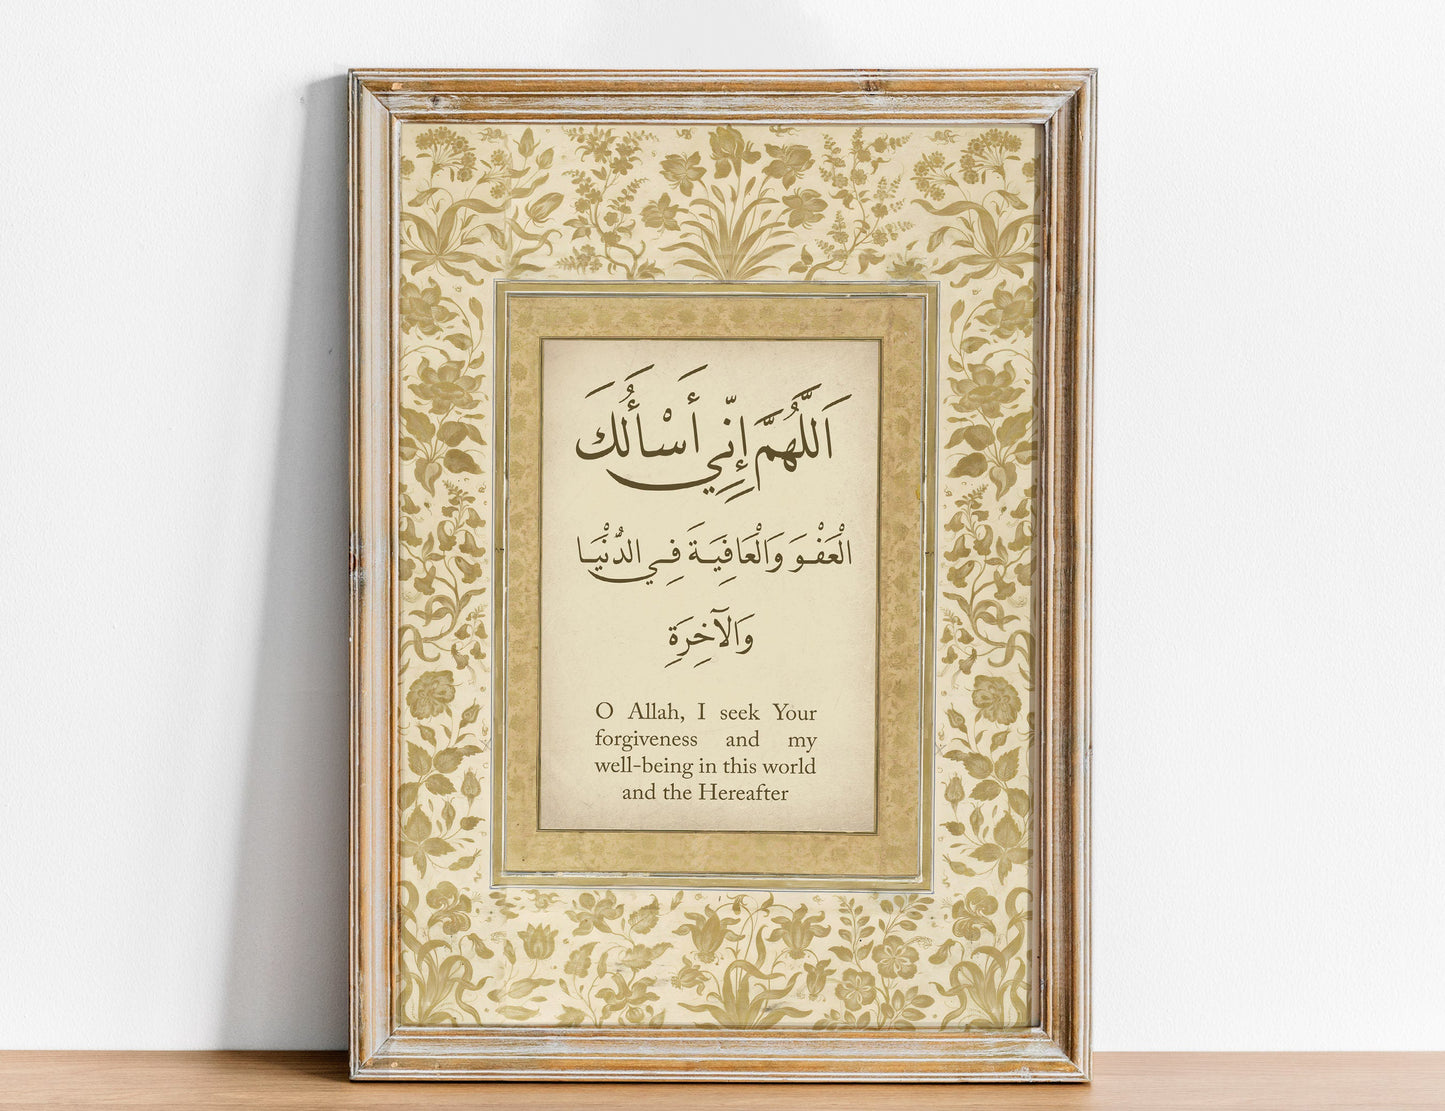 اَللّٰهُمَّ إِنِّي أَسْأَلُكَ
الْعَفْوَ وَالْعَافِيَةَ فِي الدُّنْيَا
وَالْآخِرَةِ
O Allah, I seek Your
forgiveness and my
well-being in this world
and the Hereafter